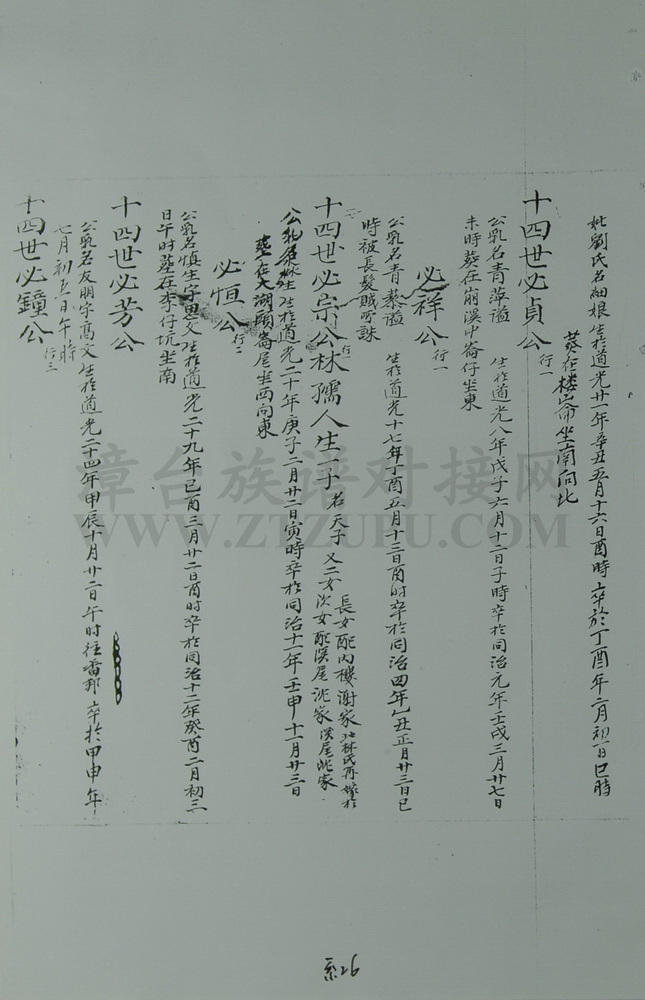 妣劉氏名細娘生於道光廿一年辛丑五月十六日酉時卒於丁酉年二月初一日巳時
葬在楼崙坐南向北
十四世必貞公行一
公乳名青萍謚 生於道光八年戊子六月十二日子時卒於同治元年壬戌三月廿七日
未時葬在崩溪中崙仔坐東
必祥公行一
公乳名青藜謚 生於道光十七年丁酉五月十三日酉時卒於同治四年乙丑正月廿三日巳
時被長髮賊所誅
十四世必宗公林孺人生一子名天子又二女次女配溪尾沈家
長女配内樓謝家妣林氏再嫁於溪尾沈家
公乳名 生於道光二十年庚子二月廿二日寅時卒於同治十一年壬申十一月廿三日
葬在大湖頭崙尾坐西向東
必恒公行二
公乳名慎生字思文生於道光二十九年己酉三月廿二日酉時卒於同治十二年癸酉二月初三
日午時葬在李仔坑坐南
十四世必芳公
公乳名友朋字高文生於道光二十四年甲辰十月廿二日午時往番邦卒於甲申年
七月初五日午時
十四世必鐘公行三
漳台族谱对接网
WWW.ZTZUPU.COM